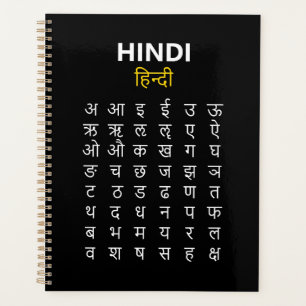 HINDI
हिन्दी
अ आ इ ई उ ऊ
ऋ ॠ ऌ ॡ ए ऐ
ओ औ क ख ग घ
ङ च छ ज झ ञ
ट ठ ड ढ ण त
थ द ध न प फ
ब भ म य र ल
व श ष स ह क्ष